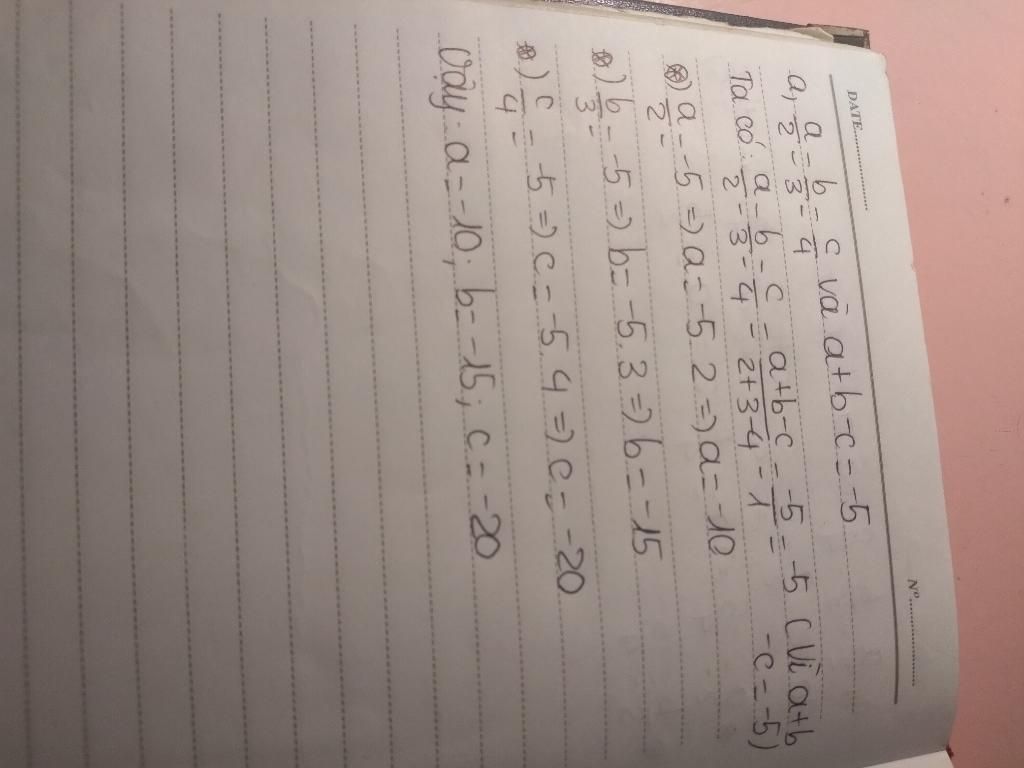 DATE................ N°................
a, a/2 = b/3 = c/4 và a+b-c = -5
Ta có: a/2 = b/3 = c/4 = a+b-c/2+3-4 = -5/1 = -5 (Vì a+b
-c = -5)
*) a/2 = -5 => a = -5.2 => a = -10
*) b/3 = -5 => b = -5.3 => b = -15
*) c/4 = -5 => c = -5.4 => c = -20
Vậy a = -10; b = -15; c = -20